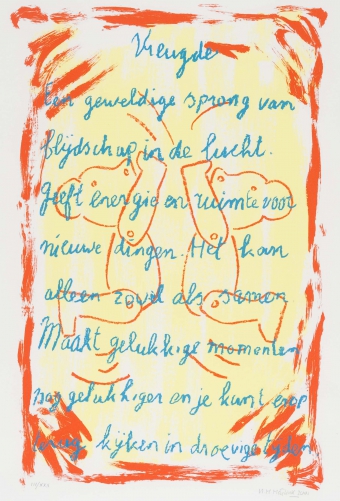 Vreugde
Een geweldige sprong van
blijdschap in de lucht.
Geeft energie en ruimte voor
nieuwe dingen. Het kan
alleen zowel als samen
Maakt gelukkige momenten
nog gelukkiger en je kunt erop
terug kijken in droevige tijden